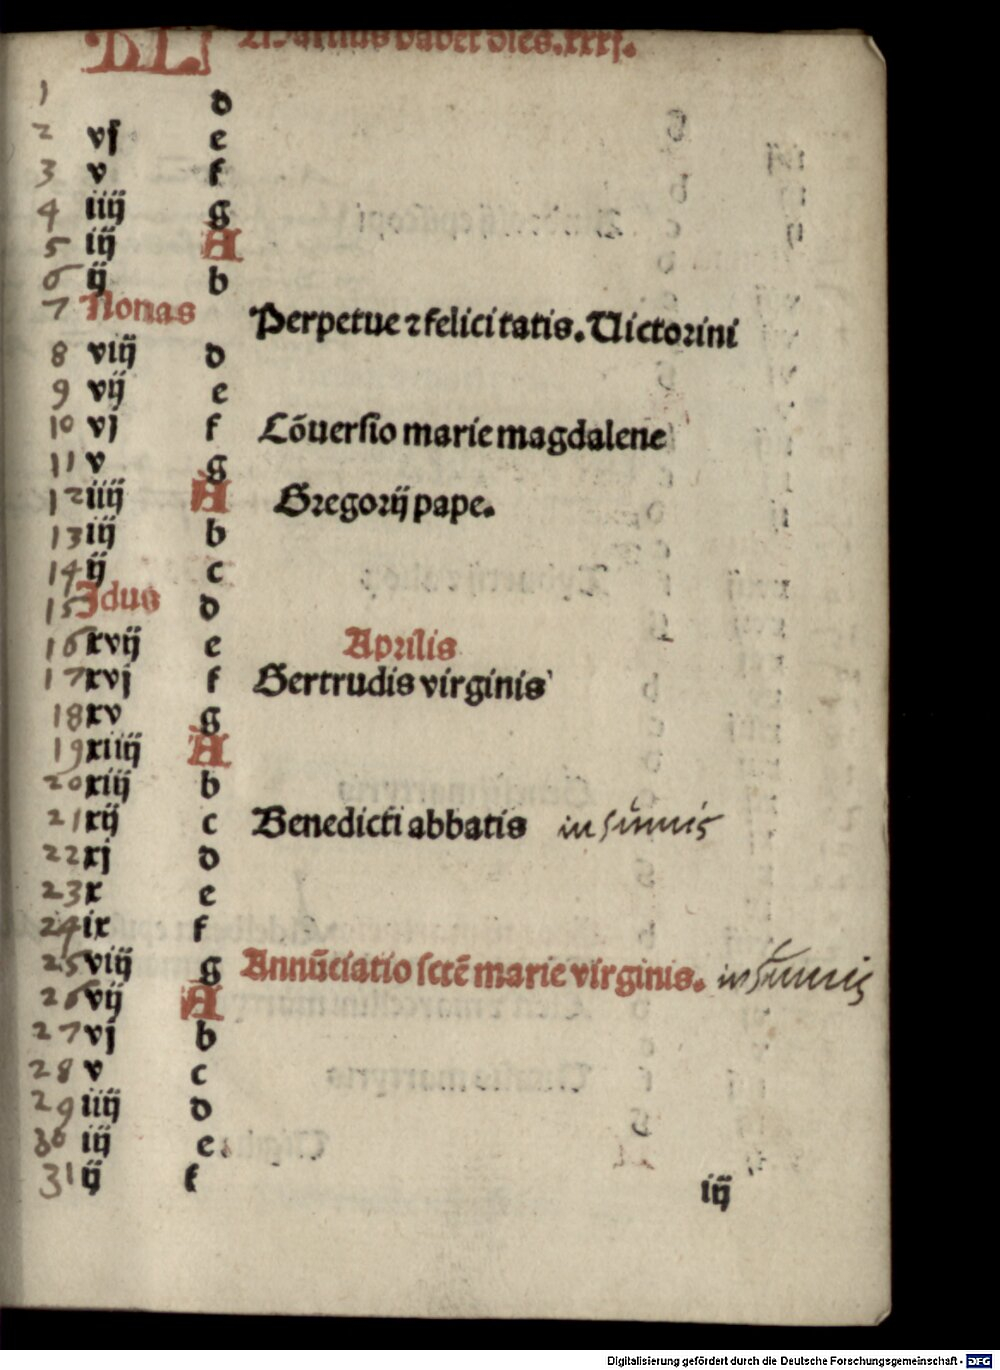 KL Martius habet dies.xxxj.
1 d
2 vj e
3 v f
4 iiij g
5 iij A
6 ij b
7 Nonas Perpetue ⁊ felicitatis. Victorini
8 viij d
9 vij e
10 vj f Cōuersio marie magdalene
11 v g
12 iiij A Gregorij pape.
13 iij b
14 ij c
15 Idus d
16 xvij e Aprilis
17 xvj f Gertrudis virginis
18 xv g
19 xiiij A
20 xiij b
21 xij c Benedicti abbatis in sūmis
22 xj d
23 x e
24 ix f
25 viij g Annūciatio sctē marie virginis. in sūmis
26 vij A
27 vj b
28 v c
29 iiij d
30 iij e
31 ij f
iij
Digitalisierung gefördert durch die Deutsche Forschungsgemeinschaft - DFG